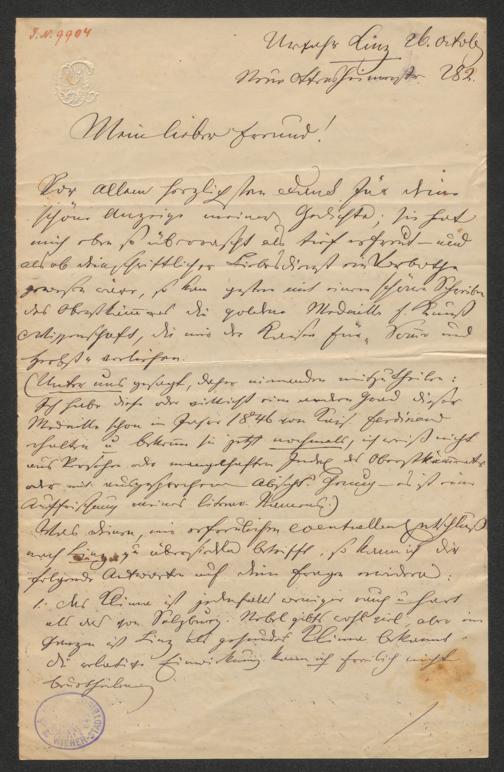 J.N. 9904
Urfahr Linz 26. Octob
Neue Ottensheimerstr 282.
Mein lieber Freund!
Vor allem herzlichsten Dank für deine
schöne Anzeige meiner Gedichte; sie hat
mich eben so überrascht als tief erfreut – und
als ob dein schriftlicher Liebesdienst ein Vorbothe
gewesen wäre, so kam gestern mit einem schönen Schreiben
des Oberstkämmerers die goldene Medaille f. Kunst
Wissenschaft, die mir der Kaiser für „ und
Herbst“ verliehen.
(Unter uns gesagt, daher niemanden mitzutheilen:
Ich habe diese oder vielleicht einen andern Grad dieser
Medaille schon im Jahre 1846 von Kais. Ferdinand
erhalten u bekomme sie jetzt nochmals, ich weiß nicht
aus Versehen oder mangelhaften Index des Oberstkämmerers
oder mit ausgesprochener Absicht. Genug – es ist eine
Auffrischung meines Namens.)
Was deinen, mir erfreulichen eventuellen Entschluß
nach Linz zu übersiedeln betrifft, so kann ich dir
folgende Antworten auf deine Frage :
1. das Klima ist jedenfalls weniger rauh u hart
als das von Salzburg. Nebel gibts wohl viel, aber im
Ganzen ist Linz als gesundes Klima bekannt
die relative Einwirkung kann ich freilich nicht
beurtheilen
WIENER STADT